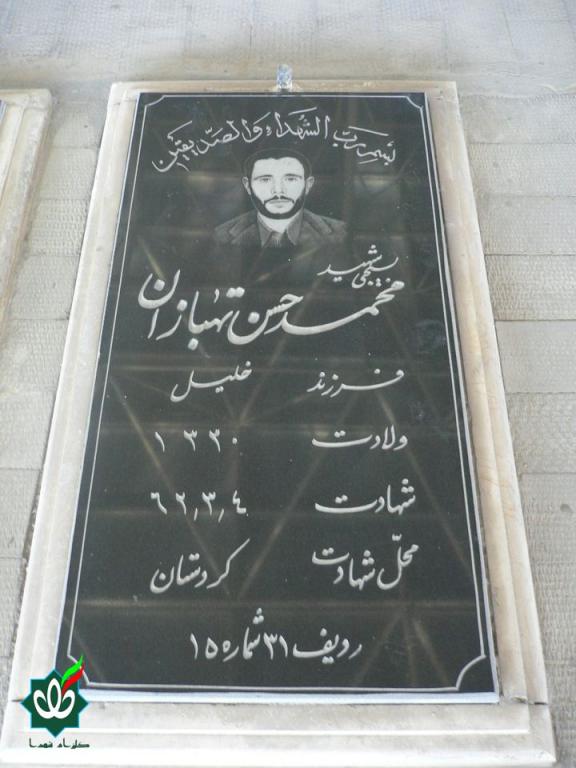 بسم رب الشهداء و الصدیقین
بسیجی شهید
محمد حسن تهبازان
فرزند خلیل
ولادت ۱۳۳۰
شهادت ۶۲٫۳٫۴
محلّ شهادت کردستان
ردیف ۳۱ شماره ۱۵
گلزار شهدا